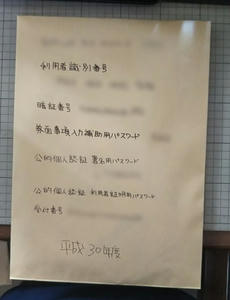 利用者識別番号
暗証番号
券面事項入力補助用パスワード
公的個人認証 署名用パスワード
公的個人認証 利用者証明用パスワード
受付番号
平成30年度